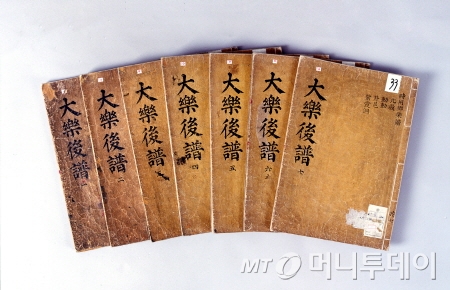 大樂後譜 一
大樂後譜 二
大樂後譜
大樂後譜 四
大樂後譜 五
大樂後譜 六
大樂後譜 七
33
動動
井邑
紫霞洞
MT 머니투데이